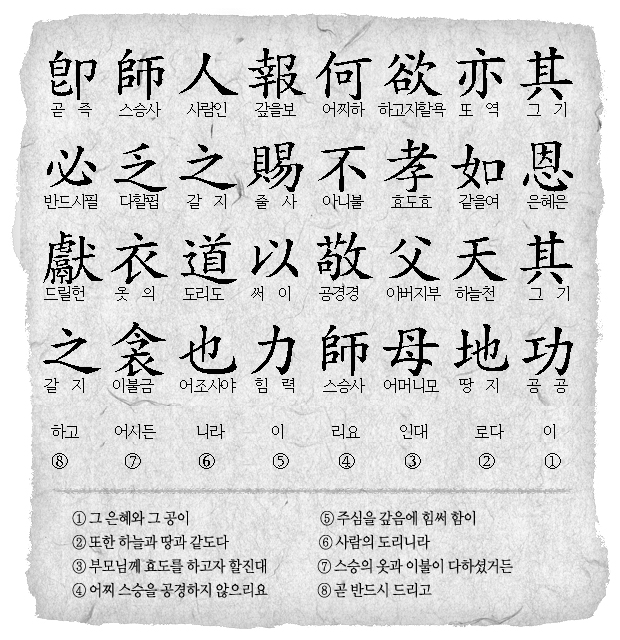 卽 師 人 報 何 欲 亦 其
곧 즉 스승사 사람인 갚을보 어찌하 하고자할욕 또 역 그 기
必 乏 之 賜 不 孝 如 恩
반드시필 다할핍 갈 지 줄 사 아니불 효도효 같을여 은혜은
獻 衣 道 以 敬 父 天 其
드릴헌 옷 의 도리도 써 이 공경경 아버지부 하늘천 그 기
之 衾 也 力 師 母 地 功
갈 지 이불금 어조사야 힘 력 스승사 어머니모 땅 지 공 공
하고 어시든 니라 이 리요 인대 로다 이
⑧ ⑦ ⑥ ⑤ ④ ③ ② ①
① 그 은혜와 그 공이
② 또한 하늘과 땅과 같도다
③ 부모님께 효도를 하고자 할진대
④ 어찌 스승을 공경하지 않으리요
⑤ 주심을 갚음에 힘써 함이
⑥ 사람의 도리니라
⑦ 스승의 옷과 이불이 다하셨거든
⑧ 곧 반드시 드리고